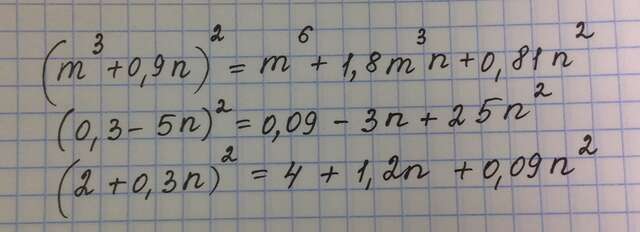 (m³+0,9n)² = m⁶+1,8m³n+0,81n²
(0,3-5n)²=0,09-3n+25n²
(2+0,3n)² = 4+1,2n+0,09n²